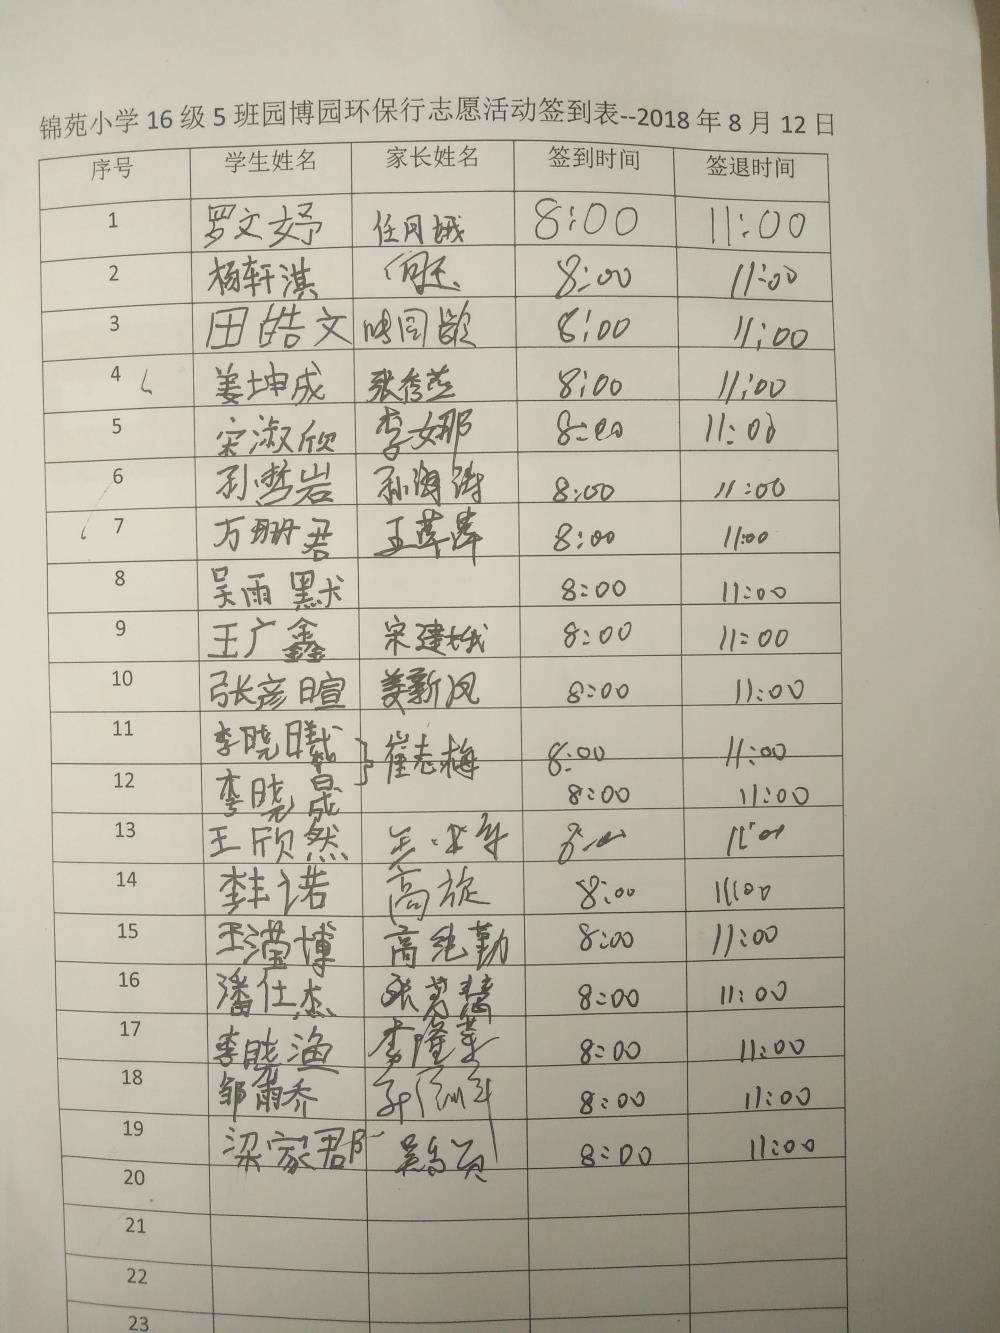 锦苑小学16级5班园博园环保行志愿活动签到表--2018年8月12日
序号 学生姓名 家长姓名 签到时间 签退时间
1 罗文妤 任同娥 8:00 11:00
2 杨轩淇 8:00 11:00
3 田皓文 8:00 11:00
4 姜坤成 张秀燕 8:00 11:00
5 宋淑欣 李女娜 8:00 11:00
6 孙哲岩 孙海涛 8:00 11:00
7 万珊君 王萍萍 8:00 11:00
8 吴雨默 8:00 11:00
9 王广鑫 宋建娥 8:00 11:00
10 张彦暄 姜新凤 8:00 11:00
11 李晓曦 崔志梅 8:00 11:00
12 李晓晟 8:00 11:00
13 王欣然 8:00 11:00
14 李丰诺 高旋 8:00 11:00
15 王滢博 高纯勤 8:00 11:00
16 潘仕杰 张慧 8:00 11:00
17 李晓渔 李隆 8:00 11:00
18 邹雨乔 8:00 11:00
19 梁家郡 8:00 11:00
20
21
22
23